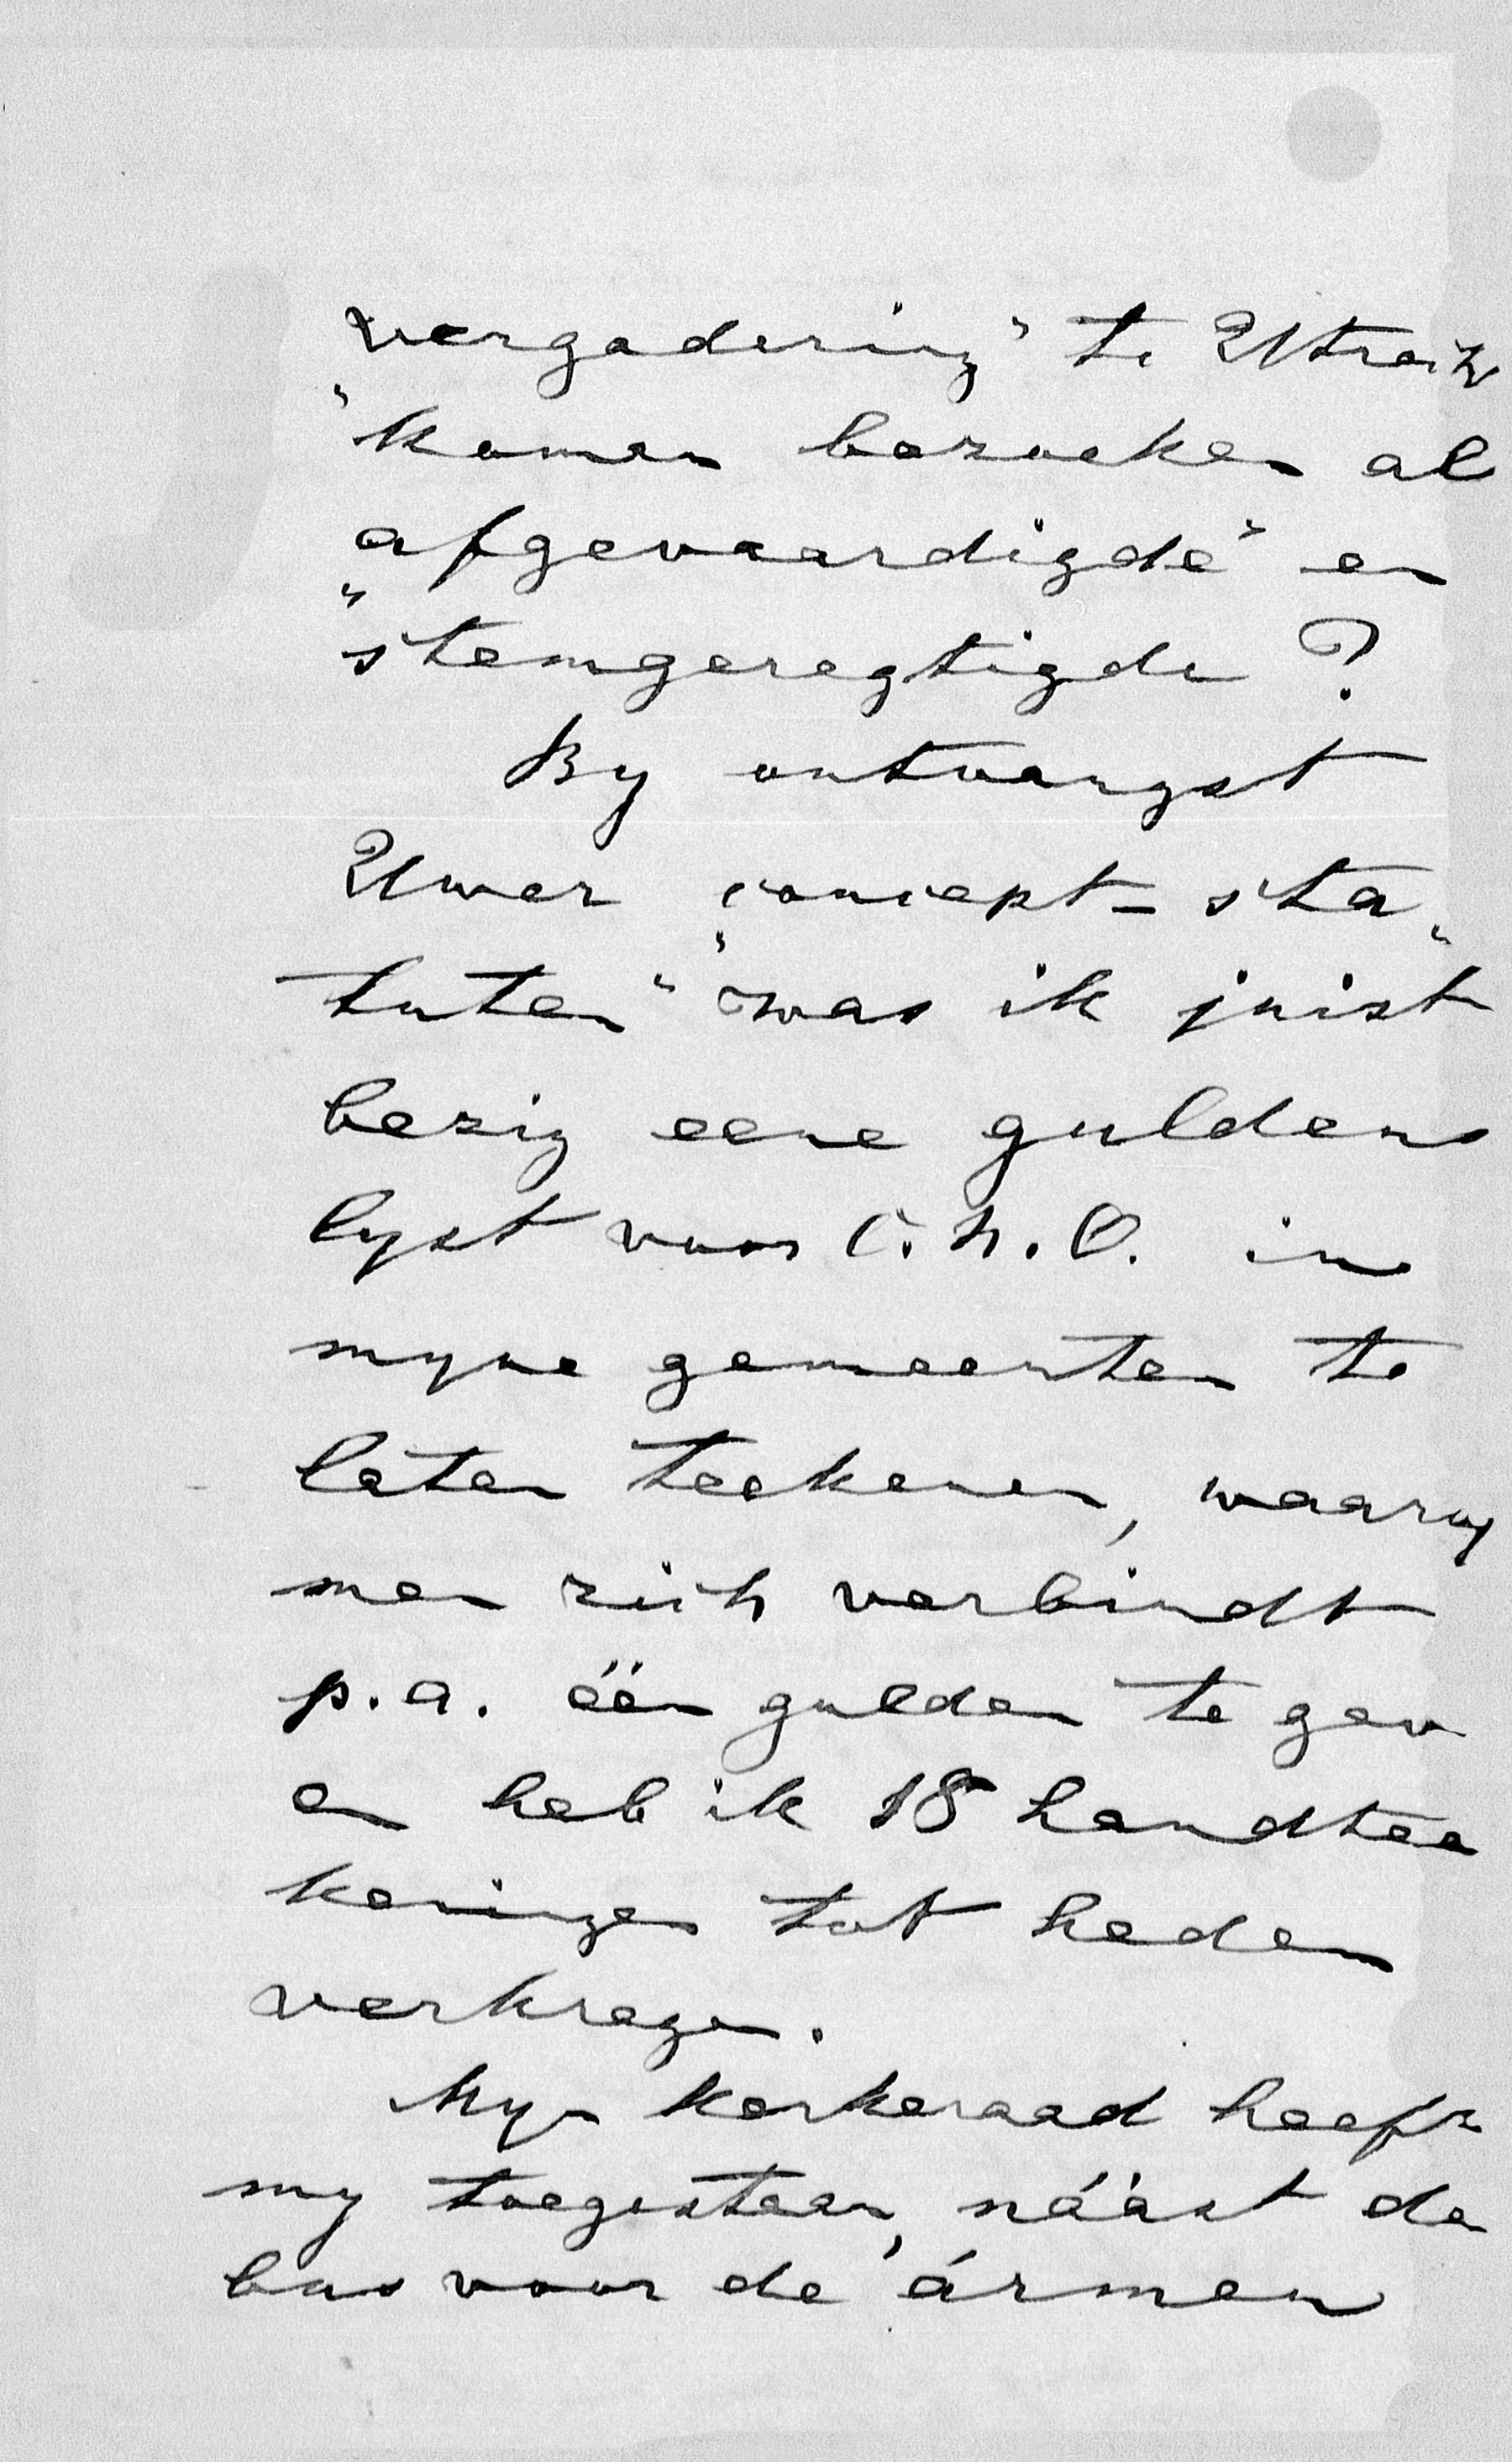 vergadering" te Utrecht
„komen bezoeken al
afgevaardigde" en
„stemgeregtigde?
By ontvangst
Uwer „concept-sta„
tuten" was ik juist
bezig eene guldens
lyst voor C.N.O. in
myne gemeenten te
laten teekenen, waarby
men zich verbindt
p.a. één gulden te gev
en heb ik 18 handtee
keningen tot heden
verkregen.
Myn kerkeraad heeft
my toegestaan, náást de
bus voor de ármen